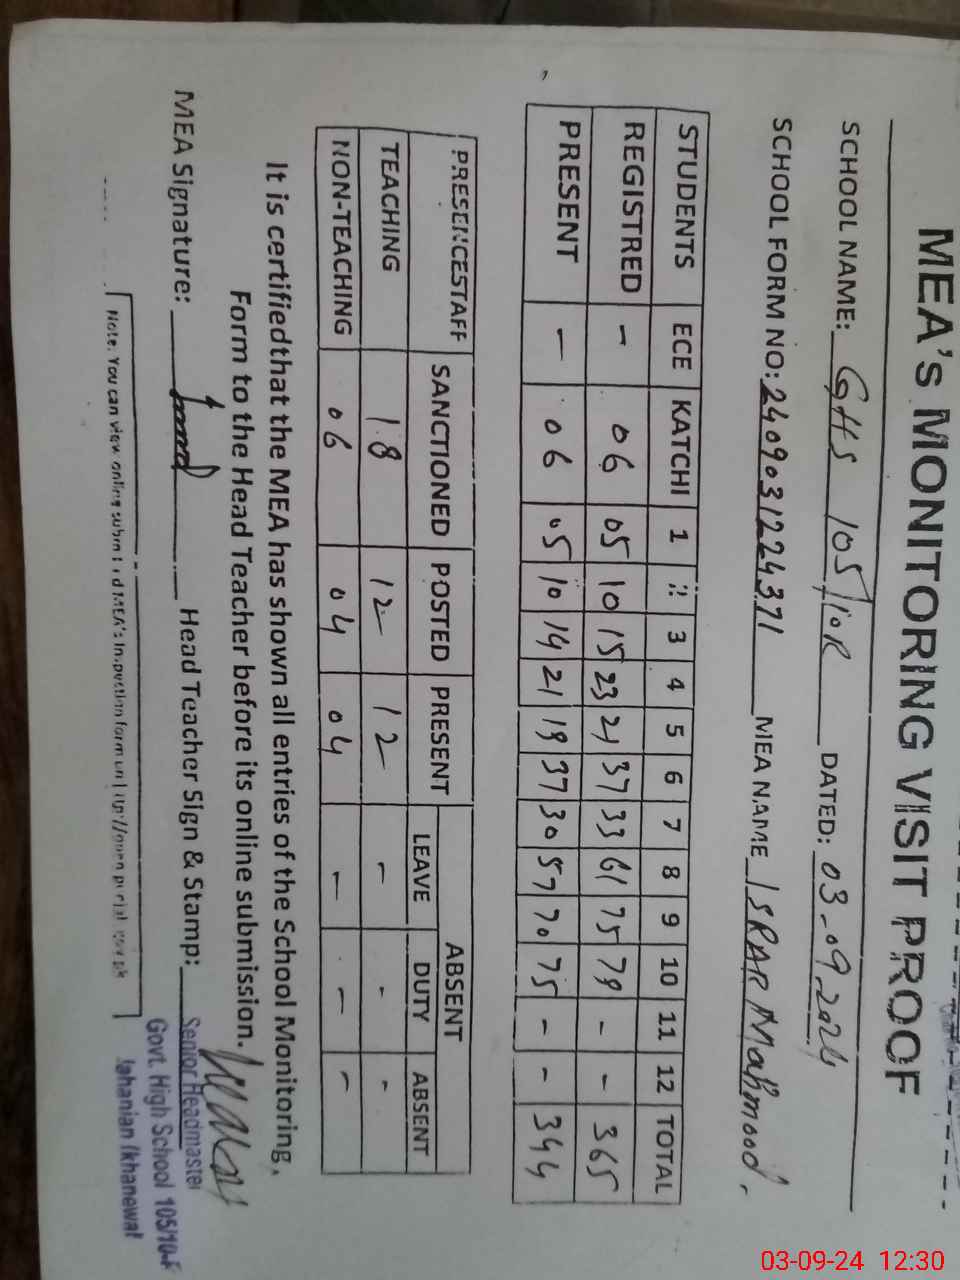 MEA's MONITORING VISIT PROOF
SCHOOL NAME: GHS 105/10R DATED: 03-09-2024
SCHOOL FORM NO: 240903122437 MEA NAME ISRAR Mahmood.
STUDENTS ECE KATCHI 1 2 3 4 5 6 7 8 9 10 11 12 TOTAL
REGISTRED - 06 05 10 15 23 21 37 33 61 75 79 - - 365
PRESENT - 06 05 10 14 21 19 37 30 57 70 75 - - 344
PRESENCESTAFF SANCTIONED POSTED PRESENT ABSENT
LEAVE DUTY ABSENT
TEACHING 18 12 12 - - -
NON-TEACHING 06 04 04 - - -
It is certifiedthat the MEA has shown all entries of the School Monitoring,
Form to the Head Teacher before its online submission.
MEA Signature: Head Teacher Sign & Stamp:
Senior Headmaster
Govt. High School 105/10-R
Jahanian (khanewal
Note: You can view online submitted MEA's Inspection form on
03-09-24 12:30